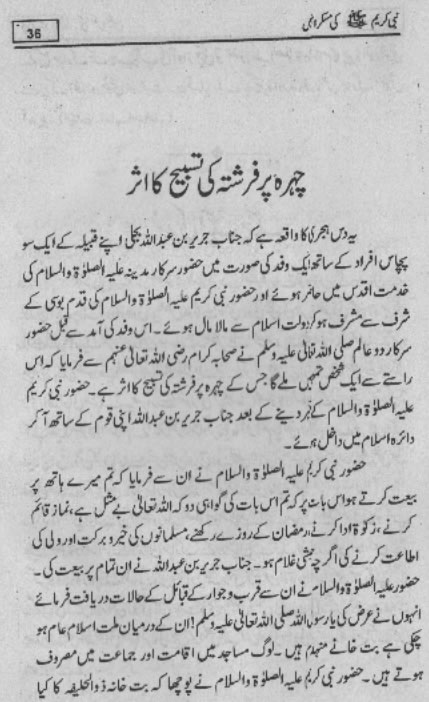 نبی کریم ﷺ کی مسکراہٹیں
36
چہرہ پر فرشتہ کی تسبیح کا اثر
یہ دس ہجری کا واقعہ ہے کہ جناب جریر بن عبد اللہ بجلی اپنے قبیلہ کے ایک سو
پچاس افراد کے ساتھ ایک وفد کی صورت میں حضور سرکار مدینہ علیہ الصلوٰۃ والسلام کی
خدمت اقدس میں حاضر ہوئے اور حضور نبی کریم علیہ الصلوٰۃ والسلام کی قدم بوسی کے
شرف سے مشرف ہو کر دولت اسلام سے مالا مال ہوئے۔ اس وفد کی آمد سے قبل حضور
سرکار دو عالم صلی اللہ تعالیٰ علیہ وسلم نے صحابہ کرام رضی اللہ تعالیٰ عنہم سے فرمایا کہ اس
راستے سے ایک شخص تمہیں ملے گا جس کے چہرہ پر فرشتہ کی تسبیح کا اثر ہے۔ حضور نبی کریم
علیہ الصلوٰۃ والسلام کے خبر دینے کے بعد جناب جریر بن عبد اللہ اپنی قوم کے ساتھ آ کر
دائرہ اسلام میں داخل ہوئے۔
حضور نبی کریم علیہ الصلوٰۃ والسلام نے ان سے فرمایا کہ تم میرے ہاتھ پر
بیعت کرتے ہو اس بات پر کہ تم اس بات کی گواہی دو کہ اللہ تعالیٰ بے مثل ہے، نماز قائم
کرنے، زکوٰۃ ادا کرنے، رمضان کے روزے رکھنے، مسلمانوں کی خیر و برکت اور ولی کی
اطاعت کرنے کی اگرچہ حبشی غلام ہو۔ جناب جریر بن عبد اللہ نے ان تمام پر بیعت کی۔
حضور علیہ الصلوٰۃ والسلام نے ان سے قرب و جوار کے قبائل کے حالات دریافت فرمائے
انہوں نے عرض کی یا رسول اللہ صلی اللہ تعالیٰ علیہ وسلم! ان کے درمیان ملت اسلام عام ہو
چکی ہے بت خانے منہدم ہیں۔ لوگ مساجد میں اقامت اور جماعت میں مصروف
ہوتے ہیں۔ حضور نبی کریم علیہ الصلوٰۃ والسلام نے پوچھا کہ بت خانہ ذوالحلیفہ کا کیا